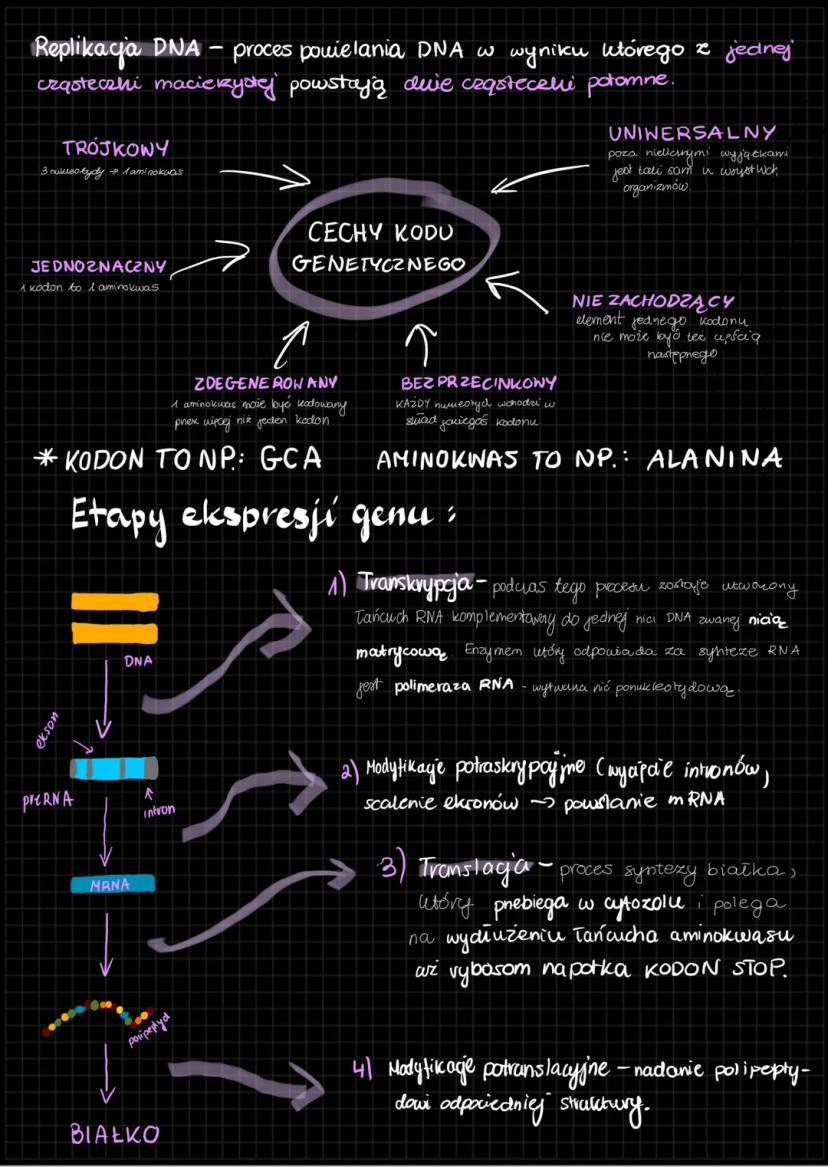 Replikacja DNA – proces powielania DNA w wyniku którego z jednej
cząsteczki macierzystej powstają dwie cząsteczki potomne.
TRÓJKOWY
3 nukleotydy → 1 aminokwas
UNIWERSALNY
poza nielicznymi wyjątkami
jest taki sam u wszystkich
organizmów
CECHY KODU
GENETYCZNEGO
JEDNOZNACZNY
1 kodon to 1 aminokwas
NIE ZACHODZĄCY
element jednego kodonu
nie może być też częścią
następnego
ZDEGENEROWANY
1 aminokwas może być kodowany
przez więcej niż jeden kodon
BEZPRZECINKOWY
KAŻDY nukleotyd wchodzi w
skład jakiegoś kodonu
* KODON TO NP.: GCA AMINOKWAS TO NP.: ALANINA
Etapy ekspresji genu:
DNA
1) Transkrypcja – podczas tego procesu zostaje utworzony
łańcuch RNA komplementarny do jednej nici DNA zwanej nicią
matrycową. Enzymem który odpowiada za syntezę RNA
jest polimeraza RNA – wytwarza nić ponukleotydową.
ekson
preRNA
intron
2) Modyfikacje potraskrypcyjne (wycięcie intronów,
scalenie eksonów → powstanie mRNA
MRNA
3) Translacja – proces syntezy białka,
który przebiega w cytozolu i polega
na wydłużeniu łańcucha aminokwasu
aż rybosom napotka KODON STOP.
polipeptyd
4) Modyfikacje potranslacyjne – nadanie polipepty-
dowi odpowiedniej struktury.
BIAŁKO